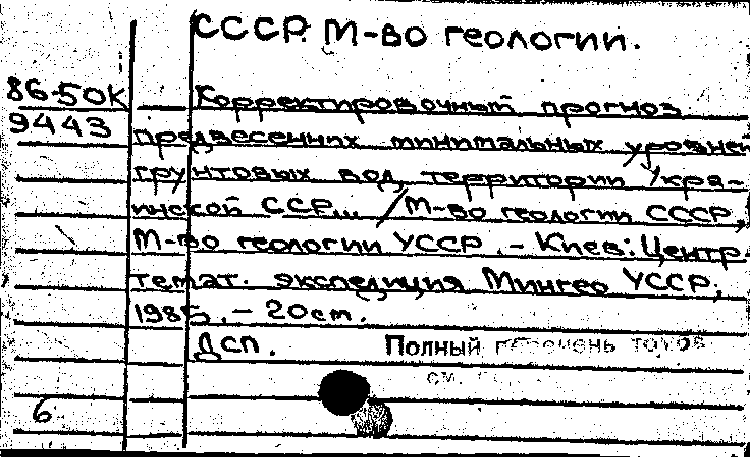 СССР. М-во геологии.
86-50К
Корректировочный прогноз
9443
предвесенних минимальных уровней
грунтовых вод, территории Укра-
инской ССР... /М-во геологии СССР,
М-во геологии УССР. - Киев: Центр.
темат. экспедиция Мингео УССР,
1985. - 20см.
ДСП.
Полный перечень томов
см.
6